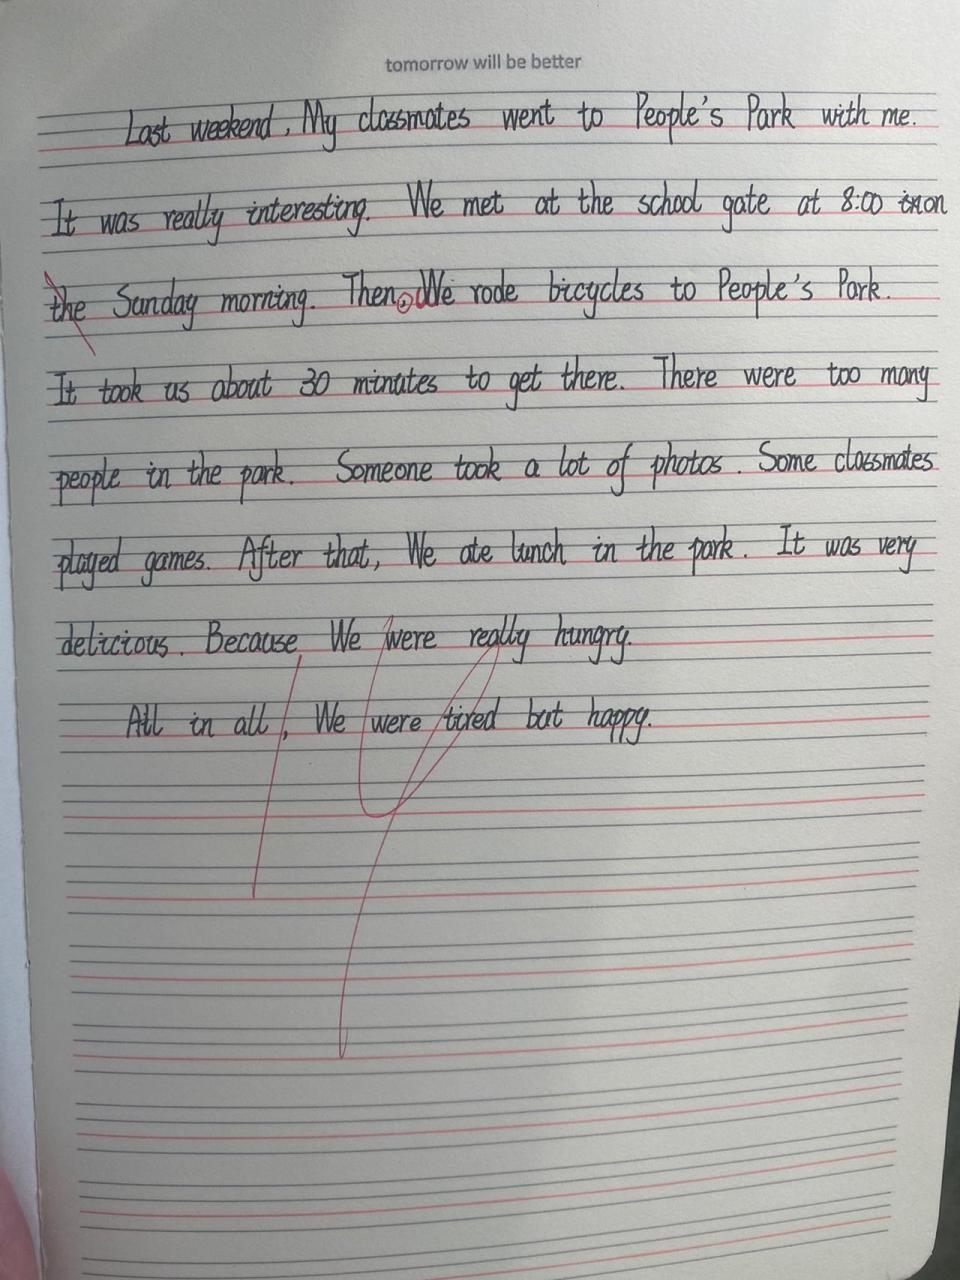 tomorrow will be better
Last weekend, My classmates went to People's Park with me.
It was really interesting. We met at the school gate at 8:00 on
the Sunday morning. Then. We rode bicycles to People's Park.
It took us about 30 minutes to get there. There were too many
people in the park. Someone took a lot of photos. Some classmates
played games. After that, We ate lunch in the park. It was very
delicious. Because We were really hungry.
All in all, We were tired but happy.
14